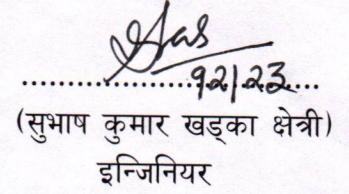 १२।२३
(सुभाष कुमार खड्का क्षेत्री)
इन्जिनियर